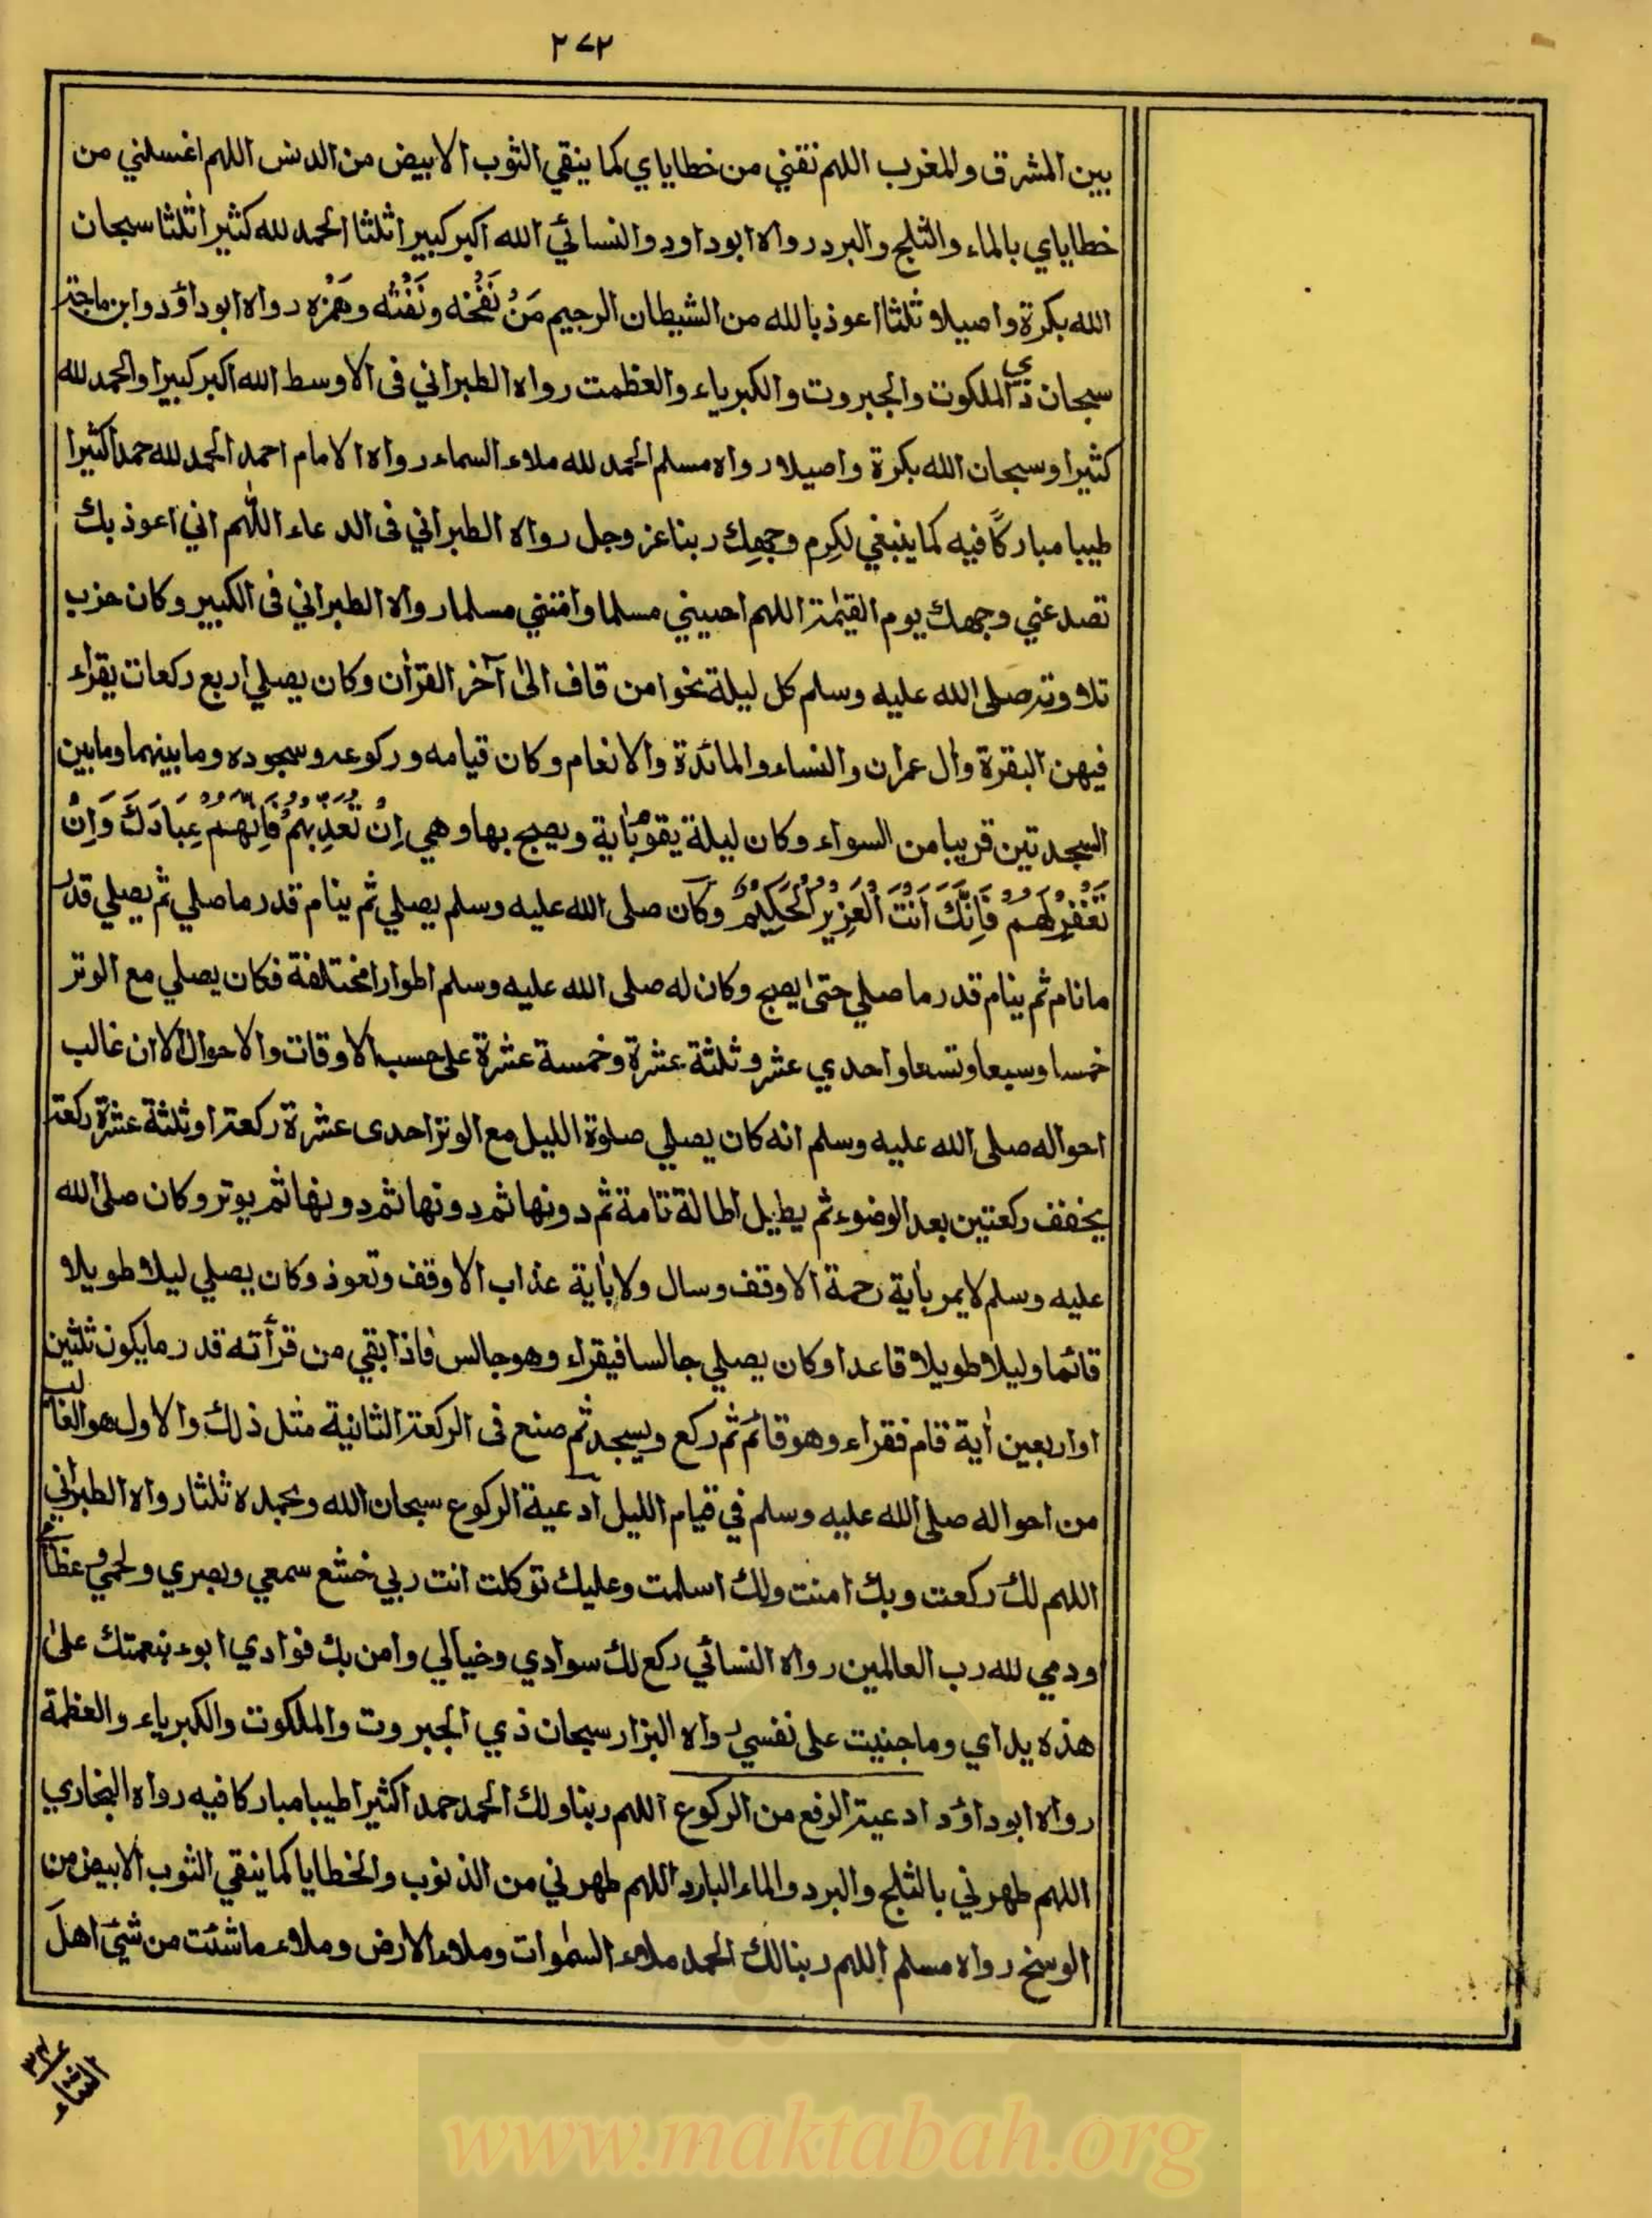 ٢٧٢
بين المشرق والمغرب اللهم نقني من خطاياي كما ينقي الثوب الابيض من الدنس اللهم اغسلني من
خطاياي بالماء والثلج والبرد رواه ابوداود والنسائي الله اكبر كبيرا ثلثا الحمد لله كثيرا ثلثا سبحان
الله بكرة واصيلا ثلثا اعوذ بالله من الشيطان الرجيم مَنْ نَفْخه ونَفْثه وهَمْزه رواه ابوداؤد وابن ماجة
سبحان ذي الملكوت والجبروت والكبرياء والعظمت رواه الطبراني فى الاوسط الله اكبر كبيرا والحمد لله
كثيرا وسبحان الله بكرة واصيلا رواه مسلم الحمد لله ملاء السماء رواه الامام احمد الحمد لله حمدا كثيرا
طيبا مباركًا فيه كما ينبغي لكِرم وجهِك ربنا عز وجل رواه الطبراني فى الدعاء اللهم اني اعوذ بك
تصد عني وجهك يوم القيٰمة اللهم احييني مسلما وامتني مسلما رواه الطبراني فى الكبير وكان حزب
تلاوته صلى الله عليه وسلم كل ليلة نحوا من قاف الىٰ آخر القرٰان وكان يصلي اربع ركعات يقراء
فيهن البقرة واٰل عمران والنساء والمائدة والانعام وكان قيامه وركوعه وسجوده وما بينهما وما بين
السجدتين قريبا من السواء وكان ليلة يقوم باٰية ويصبح بها وهي اِنْ تُعَذِّبْهُمْ فَاِنَّهُمْ عِبَادُكَ وَاِنْ
تَغْفِرْ لَهُمْ فَاِنَّكَ اَنْتَ الْعَزِيْزُ الْحَكِيْمُ وكان صلى الله عليه وسلم يصلي ثم ينام قدر ما صلي ثم يصلي قدر
ما نام ثم ينام قدر ما صلي حتىٰ يصبح وكان له صلى الله عليه وسلم اطوارا مختلفة فكان يصلي مع الوتر
خمسا وسبعا وتسعا واحدي عشر وثلثة عشرة وخمسة عشرة على حسب الاوقات والاحوال الا ان غالب
احواله صلى الله عليه وسلم انه كان يصلي صلوة الليل مع الوتر احدى عشرة ركعة او ثلثة عشرة ركعة
يخفف ركعتين بعد الوضوء ثم يطيل اطالة تامة ثم دونها ثم دونها ثم دونها ثم يوتر وكان صلى الله
عليه وسلم لا يمر باٰية رحمة الا وقف وسال ولا باٰية عذاب الا وقف وتعوذ وكان يصلي ليلا طويلا
قائما وليلا طويلا قاعدا وكان يصلي جالسا فيقراء وهو جالس فاذا بقي من قرأته قدر ما يكون ثلثين
او اربعين اٰية قام فقراء وهو قائم ثم ركع ويسجد ثم صنع فى الركعة الثانية مثل ذلك والاول هو الغالب
من احواله صلى الله عليه وسلم في قيام الليل ادعية الركوع سبحان الله وبحمده ثلثا رواه الطبراني
اللهم لك ركعت وبك امنت ولك اسلمت وعليك توكلت انت ربي خشع سمعي وبصري ولحمي وعظامي
ودمي لله رب العالمين رواه النسائي ركع لك سوادي وخيالي وامن بك فوادي ابوء بنعمتك علىٰ
هذه يداي وما جنيت على نفسي رواه البزار سبحان ذي الجبروت والملكوت والكبرياء والعظمة
رواه ابوداؤد ادعية الرفع من الركوع اللهم ربنا ولك الحمد حمدا كثيرا طيبا مباركا فيه رواه البخاري
اللهم طهرني بالثلج والبرد والماء البارد اللهم طهرني من الذنوب والخطايا كما ينقي الثوب الابيض من
الوسخ رواه مسلم اللهم ربنا لك الحمد ملاء السمٰوات وملاء الارض وملاء ما شئت من شئ اهل
www.maktabah.org